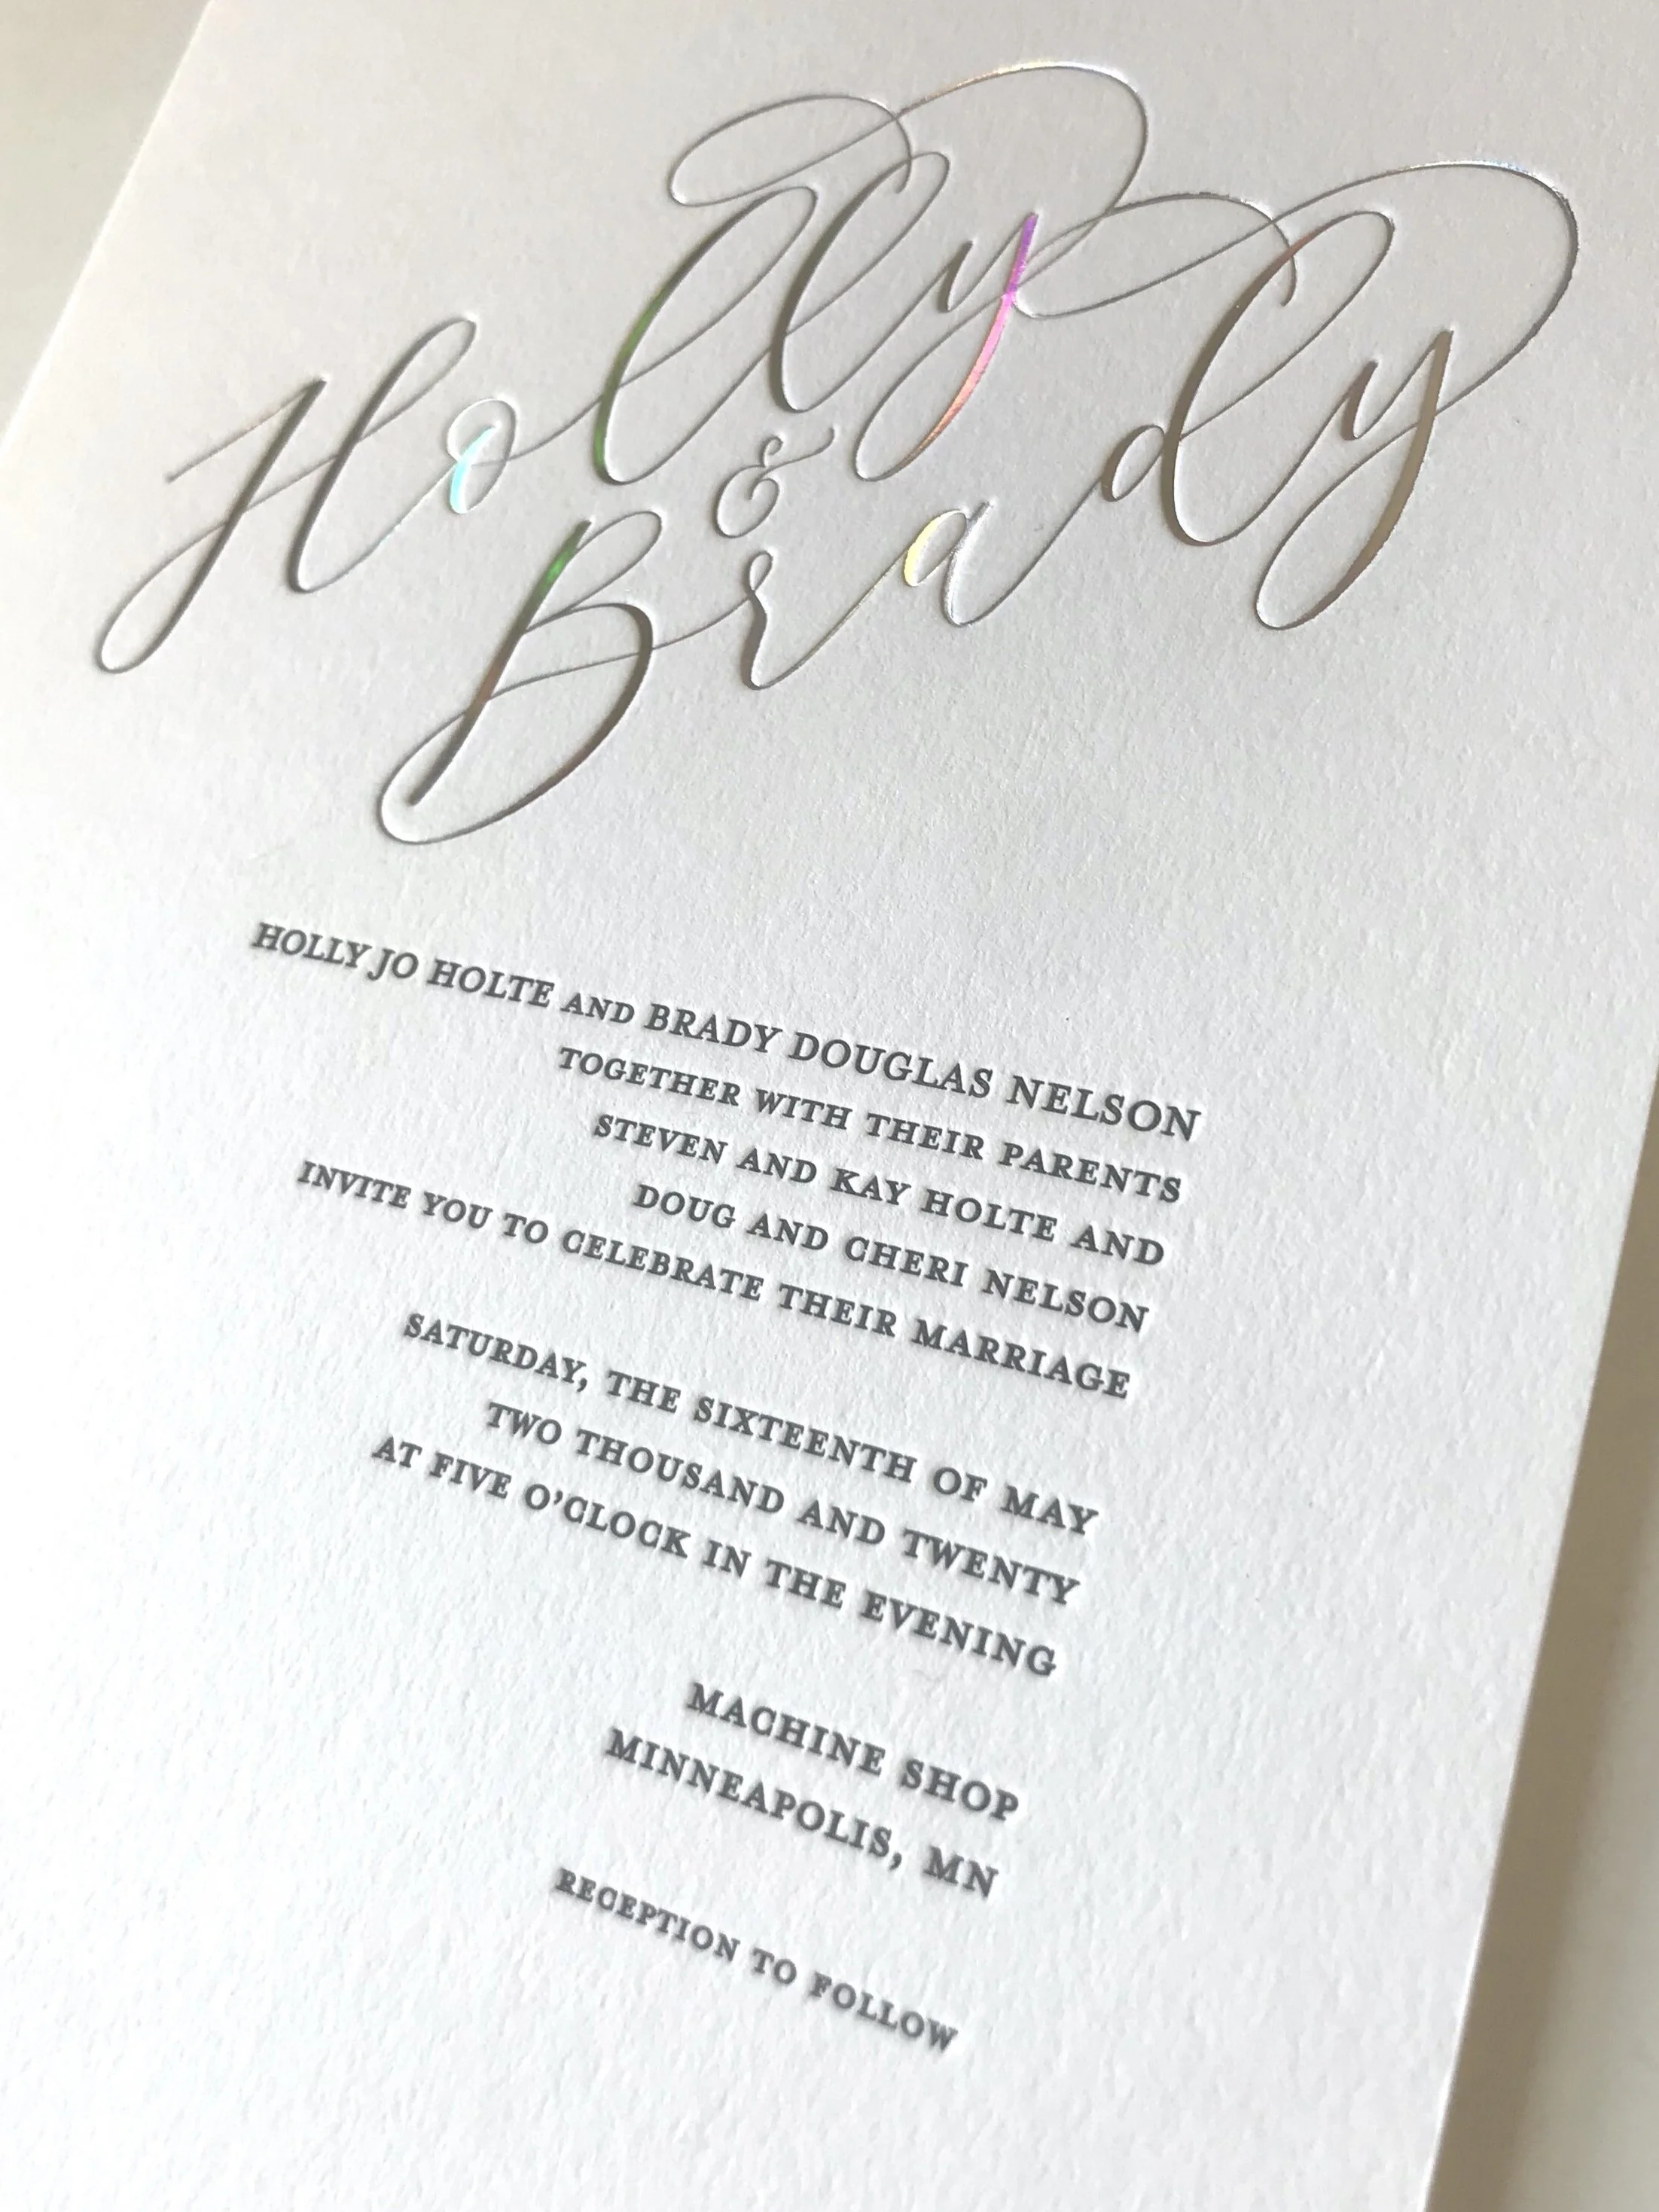 Holly
&
Brady
HOLLY JO HOLTE AND BRADY DOUGLAS NELSON
TOGETHER WITH THEIR PARENTS
STEVEN AND KAY HOLTE AND
DOUG AND CHERI NELSON
INVITE YOU TO CELEBRATE THEIR MARRIAGE
SATURDAY, THE SIXTEENTH OF MAY
TWO THOUSAND AND TWENTY
AT FIVE O’CLOCK IN THE EVENING
MACHINE SHOP
MINNEAPOLIS, MN
RECEPTION TO FOLLOW